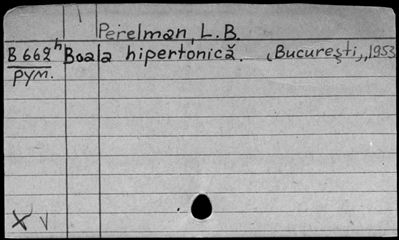 Perelman, L.B.
B 662ʰ Boala hipertonică. (București), 1953
рум.
X √